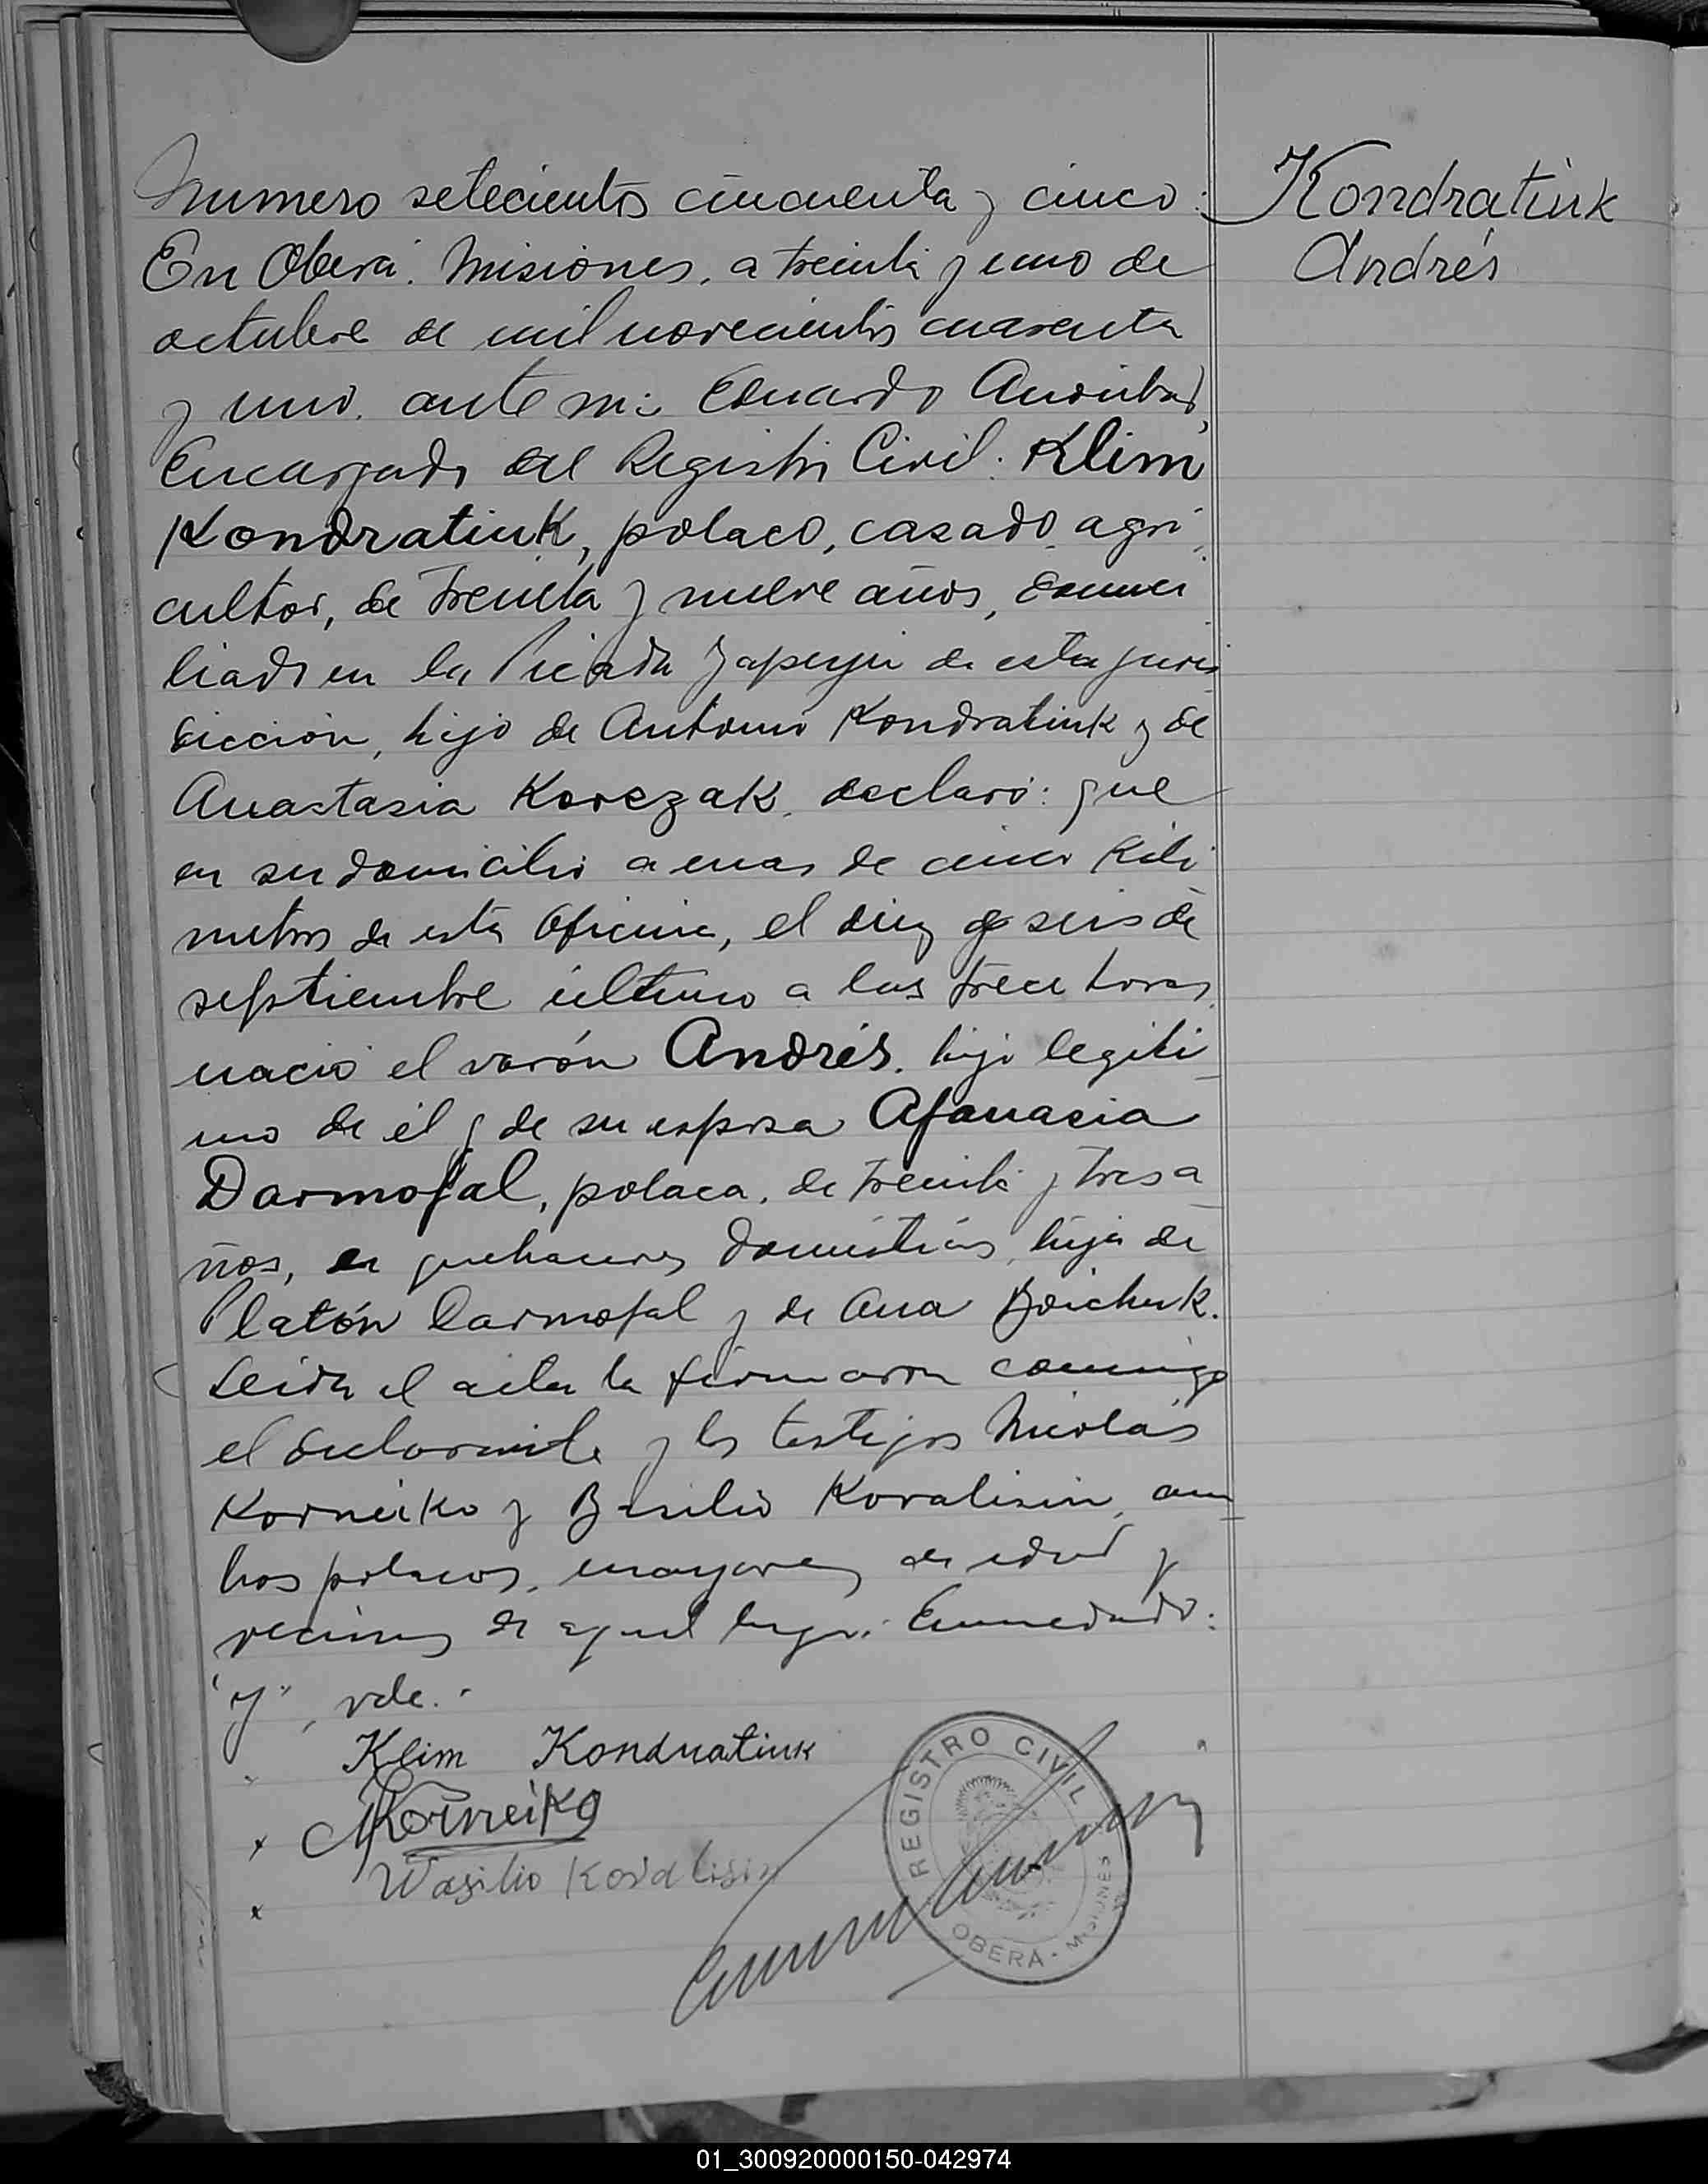 Numero setecientos cincuenta y cinco:
Kondratiuk
Andrés
En Oberá. Misiones, a treinta y uno de
octubre de mil novecientos cuarenta
y uno. ante mi Eduardo
Encargado del Registro Civil: Klim
Kondratiuk, polaco, casado, agri
cultor, de treinta y nueve años, domici
liado en la Picada Yapeyú de esta juris
dicción, hijo de Antonio Kondratiuk y de
Anastasia Korczak, declaró: que
en su domicilio a mas de cinco kiló
metros de esta Oficina, el diez y seis de
septiembre último a las trece horas
nació el varón Andrés. hijo legíti
mo de él y de su esposa Afanasia
Darmofal, polaca, de treinta y tres a
ños, de quehaceres domésticos, hija de
Platón Darmofal y de Ana Boichuk.
Leida el acta la firmaron conmigo
el declarante y los testigos Nicolás
Korneiko y Basilio Kovalisin, am
bos polacos, mayores de edad y
vecinos de aquel lugar. Enmendado:
"y", vale.-
Klim Kondratiuk
NKorneiko
Wasilio Kovalisin
REGISTRO CIVIL
OBERÁ - MISIONES
01_300920000150-042974